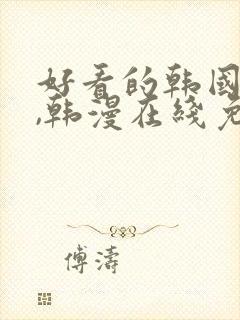 好看的韩国
,韩漫在线免
傅濤